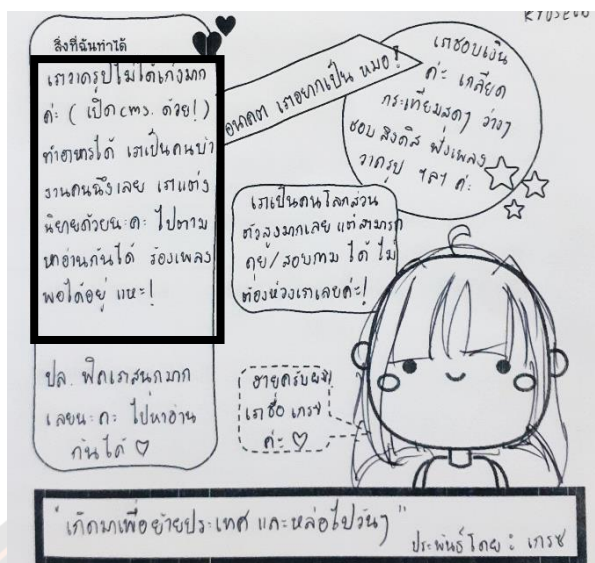 สิ่งที่ฉันทำได้
เราวาดรูปไม่ได้เก่งมาก
ค่ะ ( เปิด cms. ด้วย! )
ทำอาหารได้ เราเป็นคนบ้า
งานคนนึงเลย เราแต่ง
นิยายด้วยนะคะ ไปตาม
หาอ่านกันได้ ร้องเพลง
พอได้อยู่ แหะ!
ปล. ฟิคเราสนุกมาก
เลยนะคะ ไปหาอ่าน
กันได้ ♡
อนาคต เราอยากเป็น หมอ!
เราชอบเงิน
ค่ะ เกลียด
กระเทียมสดๆ ว่างๆ
ชอบ สิงดิส ฟังเพลง
วาดรูป ฯลฯ ค่ะ
เราเป็นคนโลกส่วน
ตัวสูงมากเลย แต่สามารถ
คุย/สอบถาม ได้ ไม่
ต้องห่วงเราเลยค่ะ!
ฮายครับผม!
เราชื่อ เกรซ
ค่ะ ♡
"เกิดมาเพื่อย้ายประเทศ และหล่อไปวันๆ"
ประพันธ์โดย : เกรซ